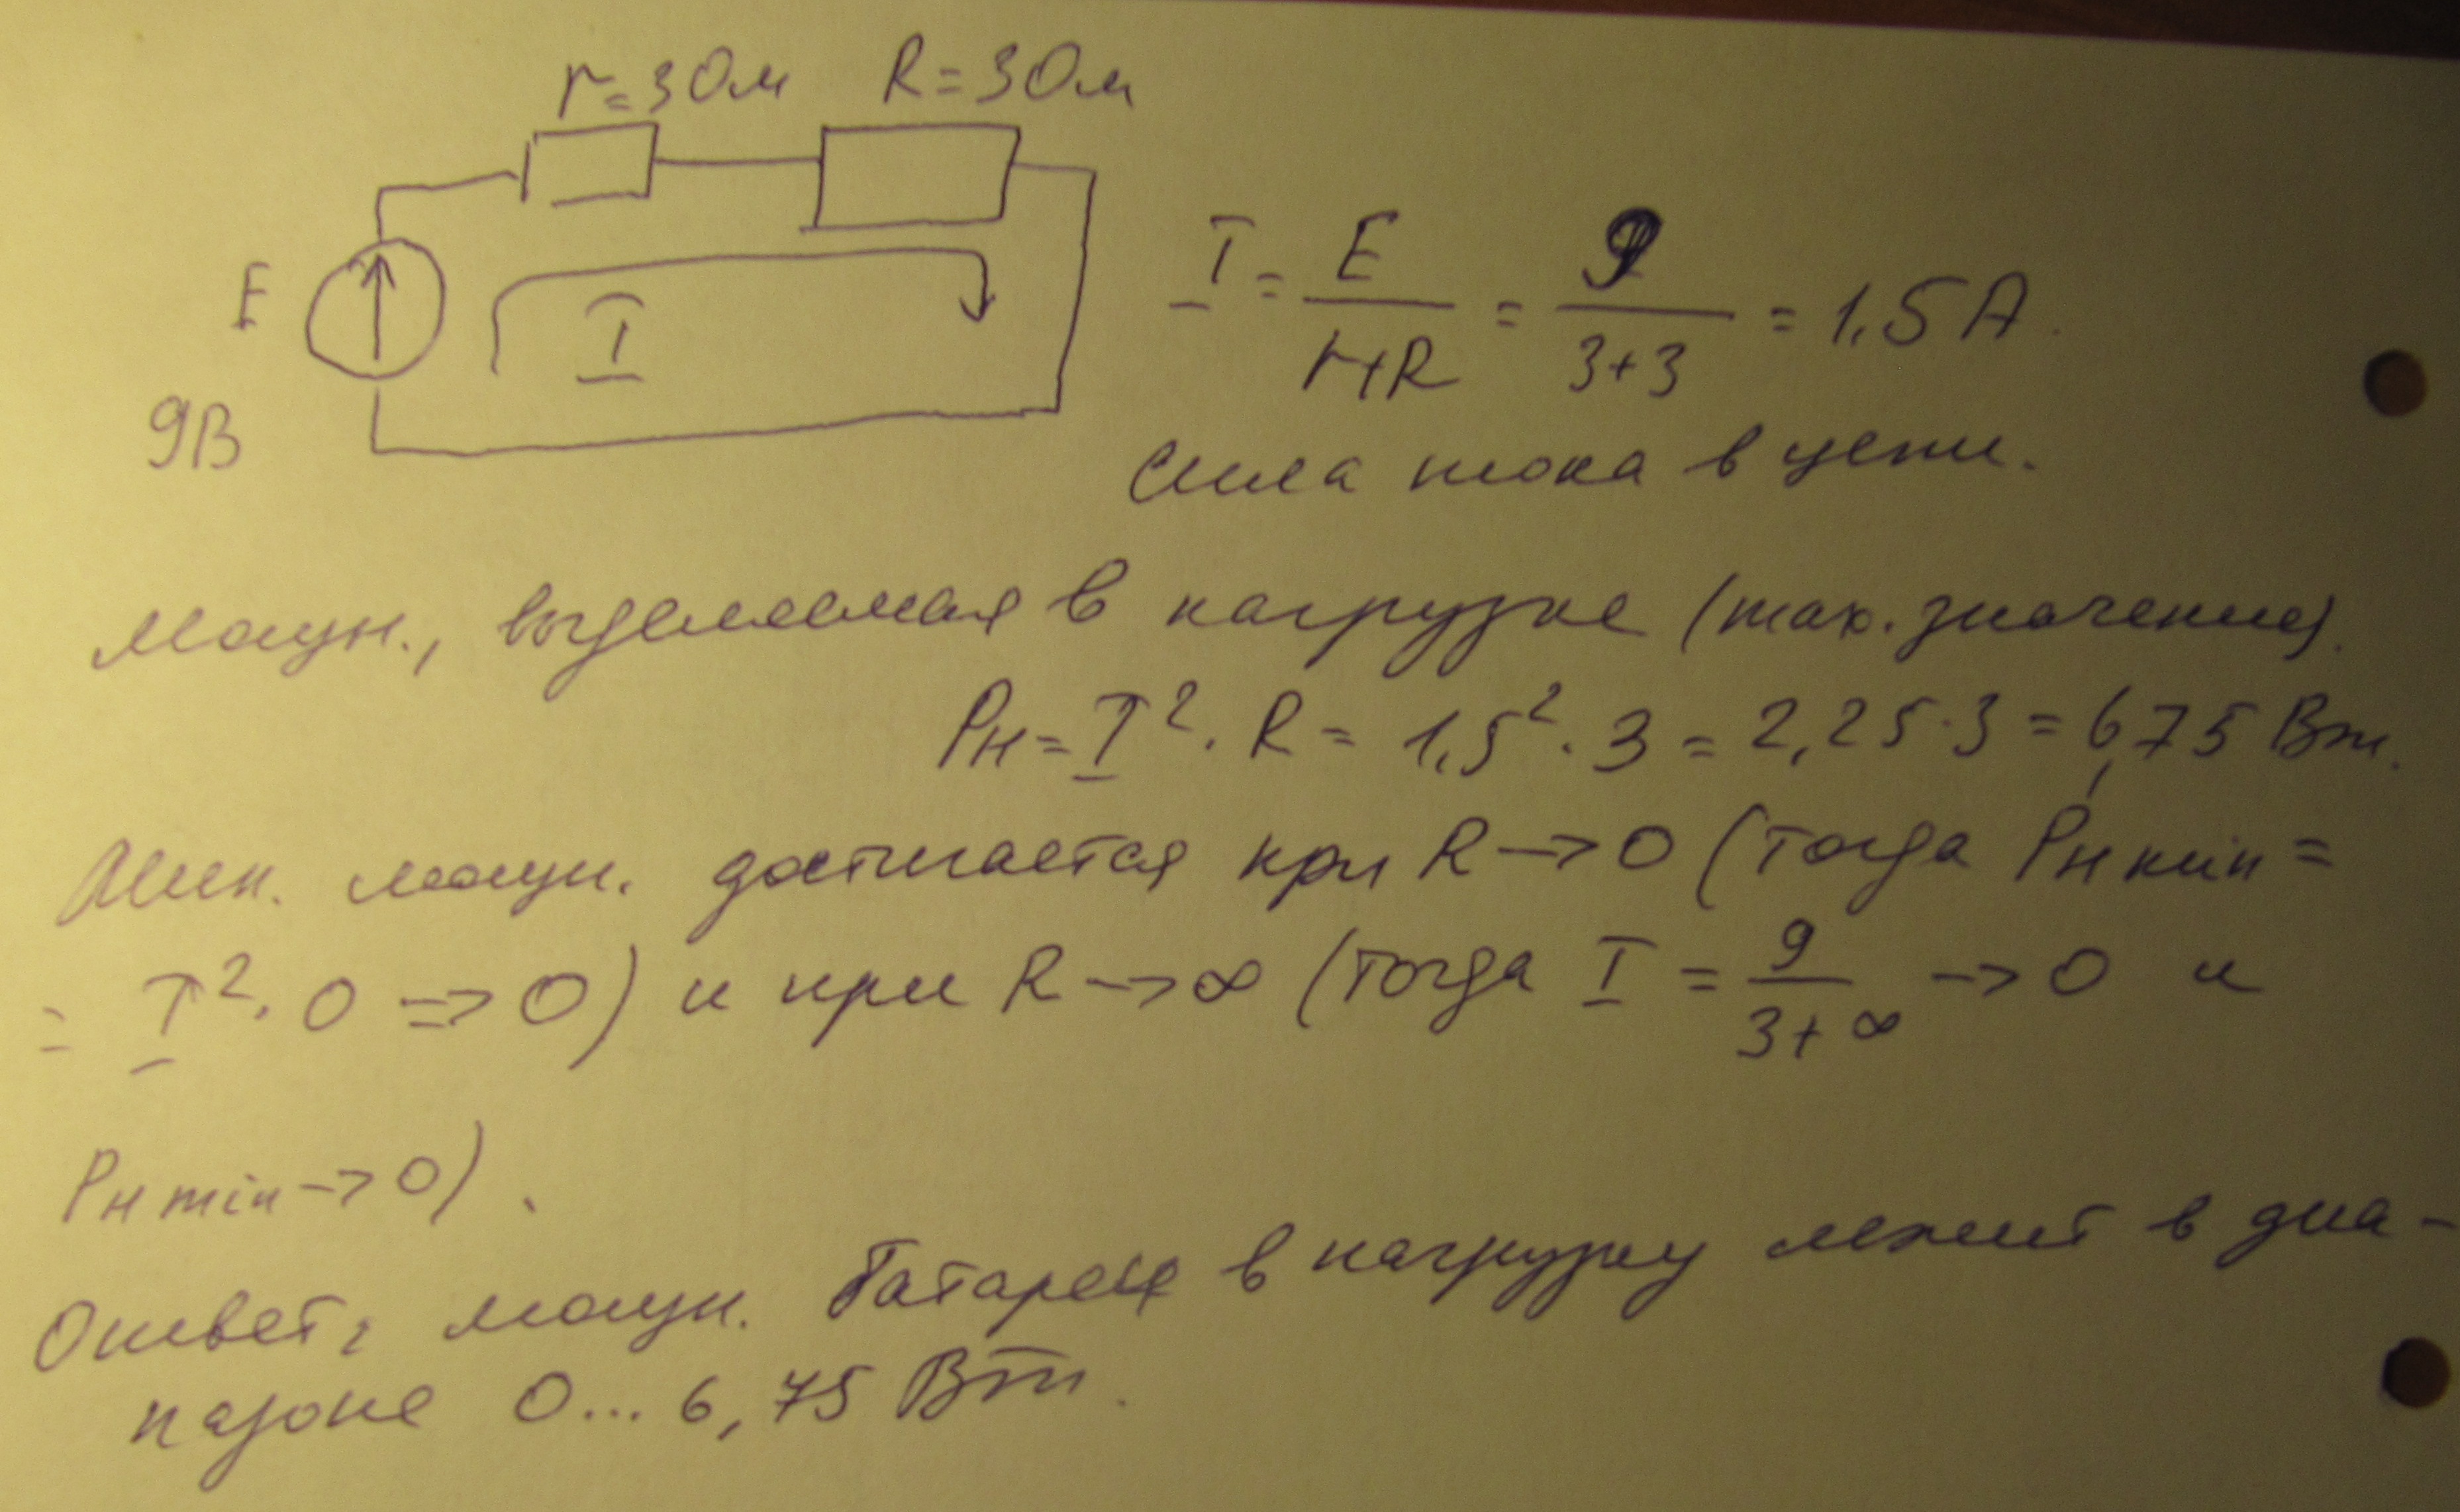 r=3Ом R=3Ом
E
9В
I
I = E/(r+R) = 9/(3+3) = 1,5 А.
Сила тока в цепи.
Мощн., выделяемая в нагрузке (max. значение).
Pн = I². R = 1,5². 3 = 2,25·3 = 6,75 Вт.
Мин. мощн. достигается при R → 0 (тогда Pн min =
= I². 0 => 0) и при R → ∞ (тогда I = 9/(3+∞) → 0 и
Pн min → 0).
Ответ: мощн. батареи в нагрузку лежит в диа-
пазоне 0... 6,75 Вт.